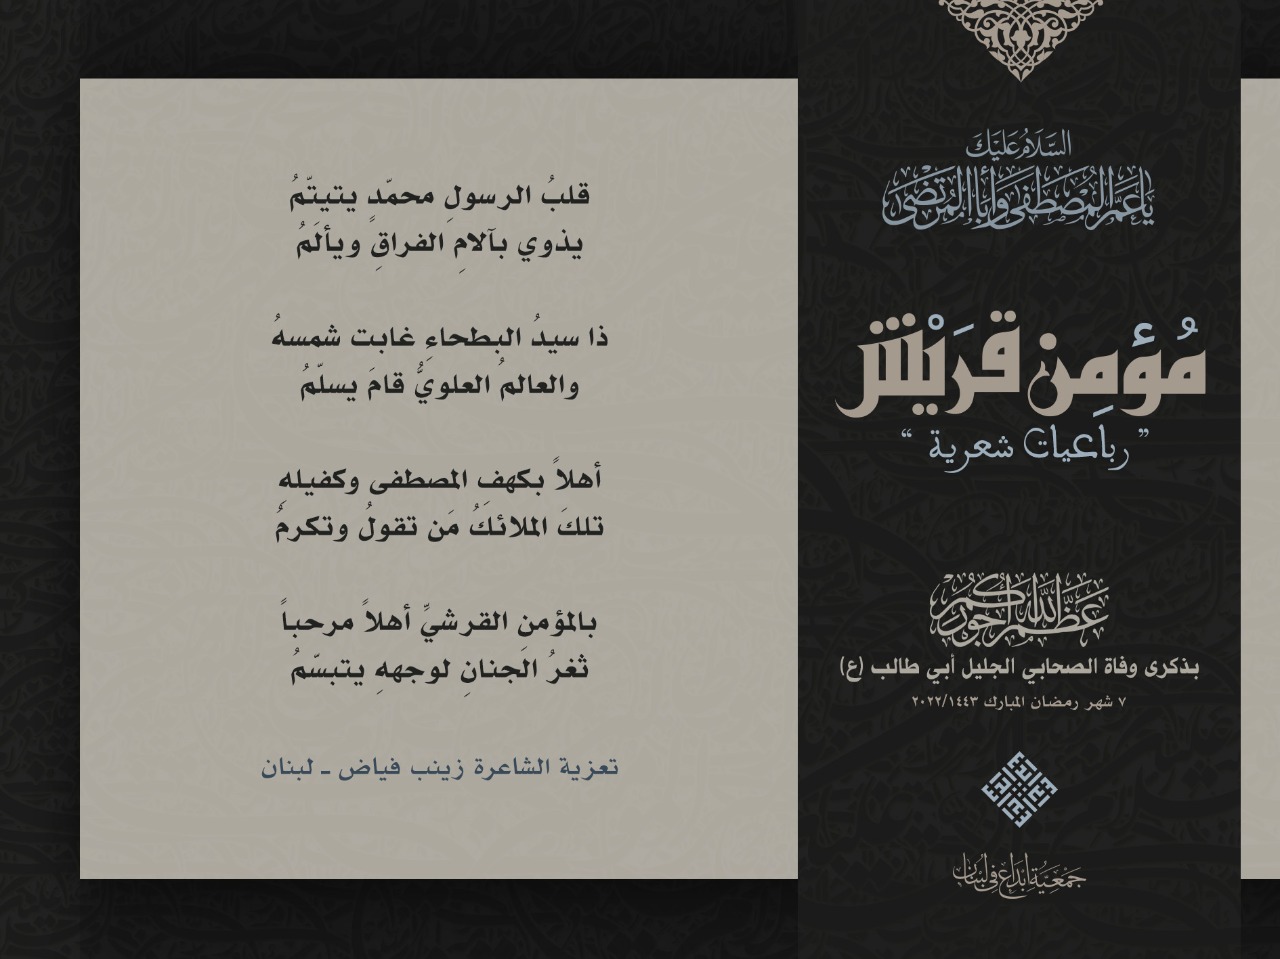 السَّلَامُ عَلَيْكَ
يَا عَمَّ الْمُصْطَفَى وَأَبَا الْمُرْتَضَى
مُؤمِن قرَيْش
” رباعيات شعرية “
عَظَّمَ اللَّهُ أُجُورَكُمْ
بذكرى وفاة الصحابي الجليل أبي طالب (ع)
٧ شهر رمضان المبارك ٢٠٢٢/١٤٤٣
جَمْعِيَّة إِبْدَاع فِي لُبْنَان
قلبُ الرسولِ محمّدٍ يتيتّمُ
يذوي بآلامِ الفراقِ ويألَمُ
ذا سيدُ البطحاءِ غابت شمسهُ
والعالمُ العلويُّ قامَ يسلّمُ
أهلاً بكهفِ المصطفى وكفيلهِ
تلكَ الملائكُ مَن تقولُ وتكرمُ
بالمؤمنِ القرشيِّ أهلاً مرحباً
ثغرُ الجنانِ لوجههِ يتبسّمُ
تعزية الشاعرة زينب فياض ـ لبنان